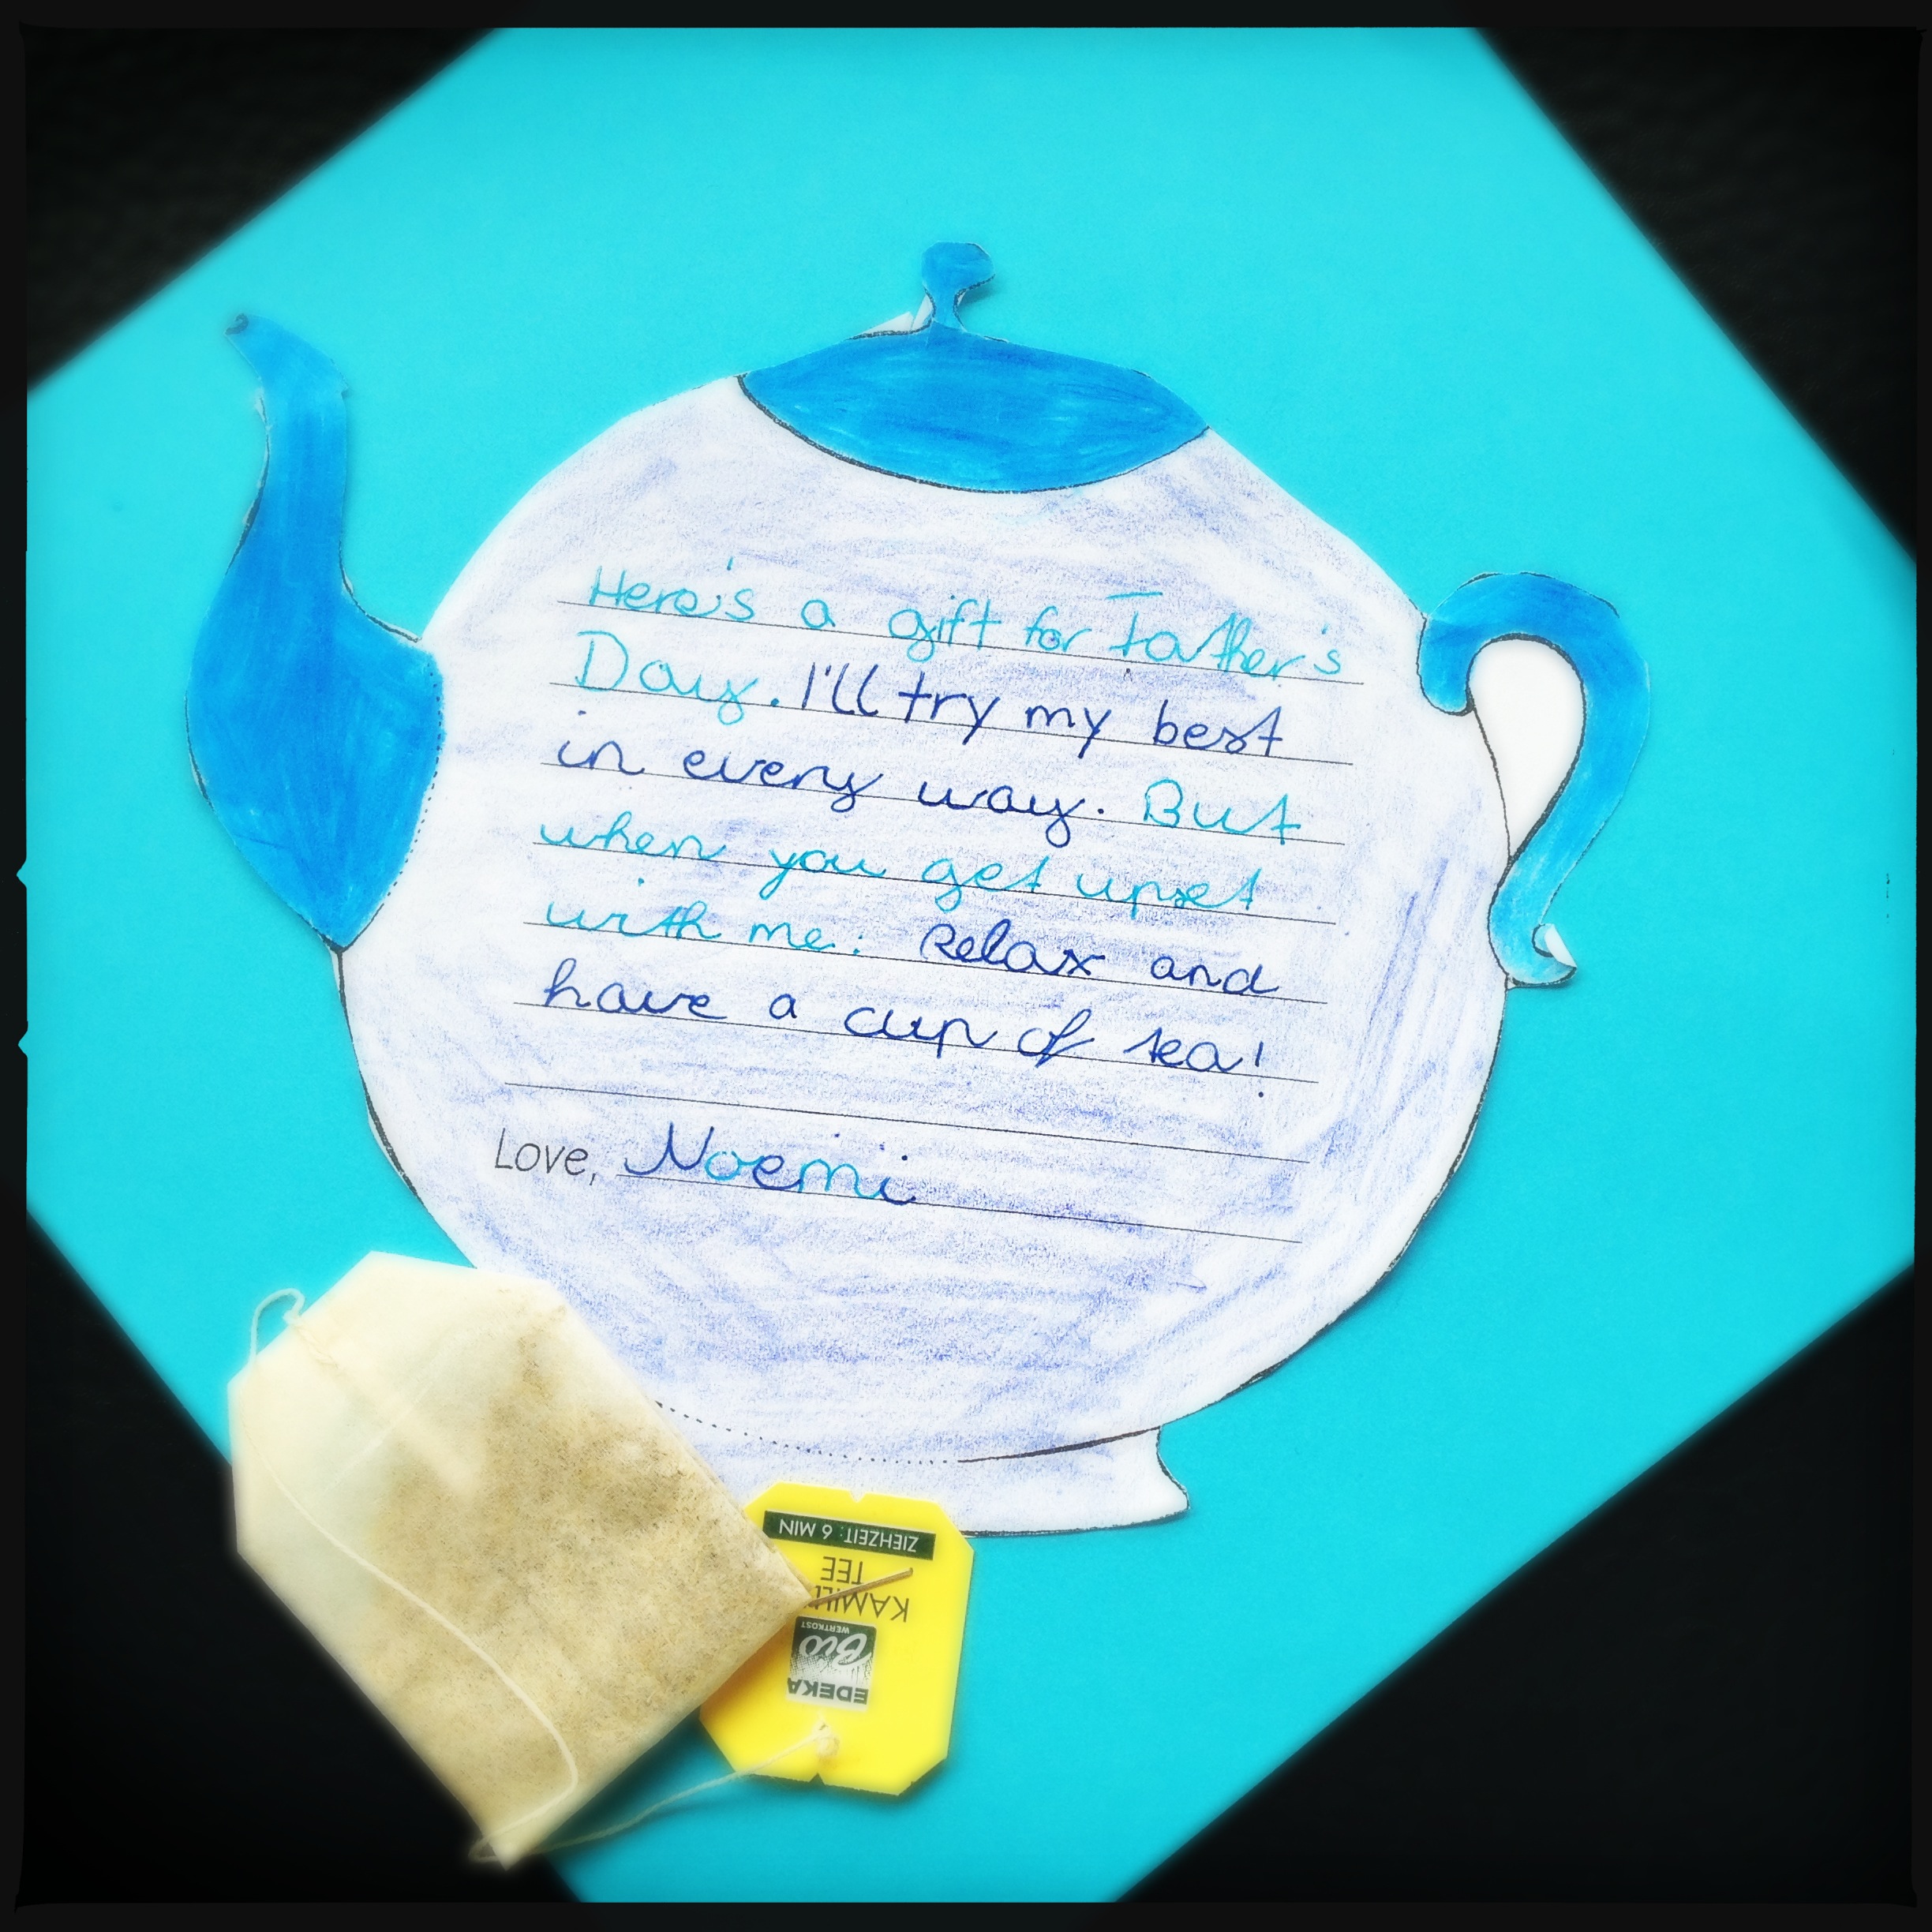 Here's a gift for Father's
Day. I'll try my best
in every way. But
when you get upset
with me: Relax and
have a cup of tea!
Love, Noemi
ZIEHZEIT: 6 MIN
TEE
Bio
WERTKOST
EDEKA